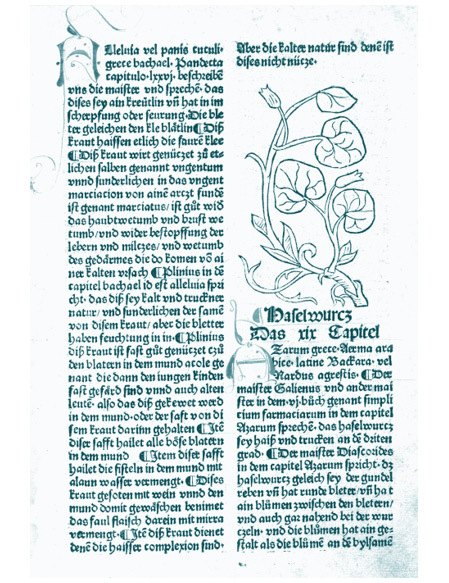 Alleluia vel panis cuculi.
grece bachael. Pandecta
capitulo.lxxvj. beschreibē
vns die maister vnd sprechē. das
dises sey ain kreütlin vñ hat in im
scherpffung oder seurung. Die ble
ter geleichen den kle blåtlin ¶ Diß
kraut haissen etlich die saurē klee
¶ Diß kraut wirt genüczet zů et-
lichen salben genannt vngentum
vnnd sunderlichen in das vngent
marciacon von ainē arczt fundē
ist genant marciatus/ ist gůt wid
das haubtwetumb vnd brust we
tumb/vnd wider bestopffung der
lebern vnd milczes/ vnd wetumb
des gedärmes die do komen vō ai
ner kalten vrsach ¶ Plinius in dē
capitel bachael id est alleluia spri
cht. das diß sey kalt vnd truckner
natur/ vnd sunderlichen der samē
von disem kraut/ aber die bletter
haben feuchtung in in. ¶ Plinius
diß kraut ist fast gůt genüczet czů
den blatern in dem mund acole ge
nant die dann den iungen kinden
fast gefård sind vnnd auch alten
leutē. also das diß gekewet werd
in dem mund. oder der saft von di
sem kraut darinn gehalten ¶ Itē
diser safft hailet alle böse blatern
in dem mund ¶ Item diser safft
hailet die fisteln in dem mund mit
alaun wasser vermengt. ¶ Dises
kraut gesoten mit wein vnnd den
mund domit gewåschen benimet
das faul flaisch darein mit mirra
vermengt. ¶ Itē diß kraut dienet
denē die haisser complexion sind.
Aber die kalter natur sind denē ist
dises nicht nücze.
¶ Haselwurcz
Das xix Capitel
Azarum grece. Aerma ara
bice. latine Backara. vel
Nardus agrestis. ¶ Der
maister Galienus vnd ander mai
ster in dem.vj.bůch genant simpli
cium farmaciarum in dem capitel
Azarum sprechē. das haselwurcz
sey haiß vnd trucken an dē driten
grad. ¶ Der maister Diascorides
in dem capitel Azarum spricht. dz
haselwurcz geleich sey der gundel
reben vñ hat runde bleter/ vñ hat
ain blůmen zwischen den bletern/
vnd auch gar nahend bei der wur
czeln. vnd die blůmen hat ain ge-
stalt als die blůmē an dē bylsamē